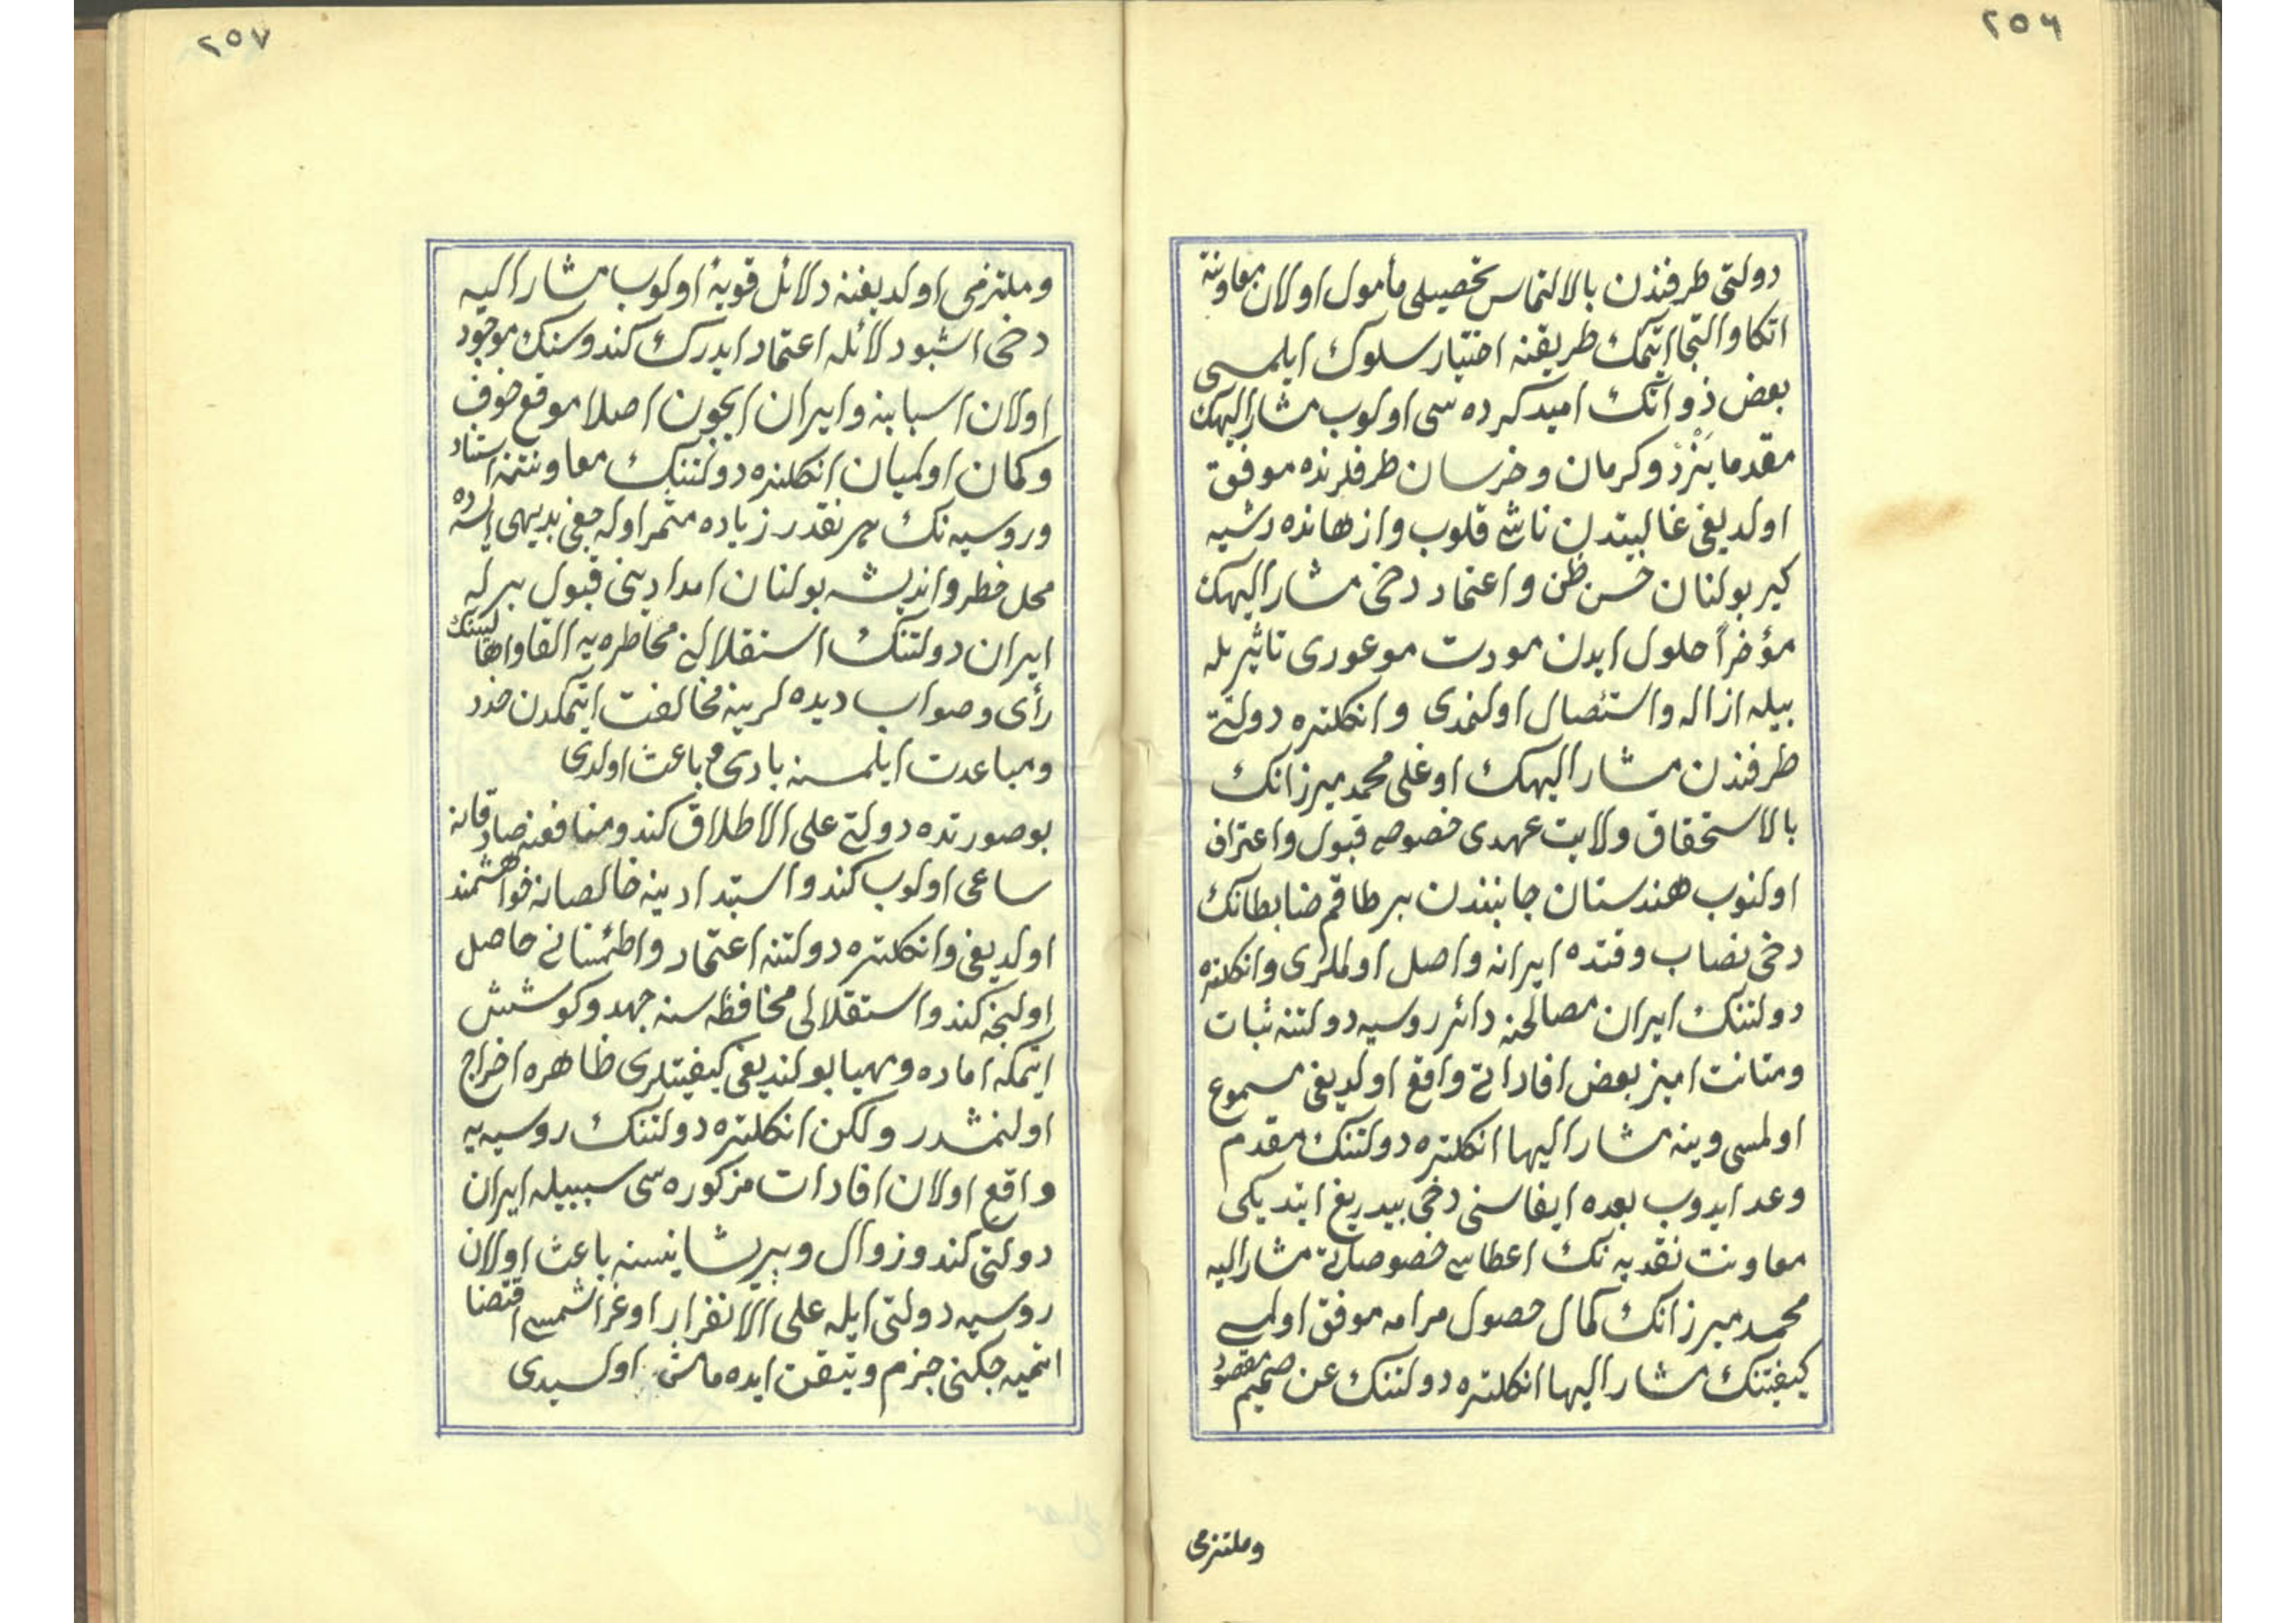 ٢٥٦
دولتی طرفندن بالالتماس تحصیلی مأمول اولان معاونته
اتکا و التجا ایتمك طریقنه اختیار سلوك ایلمسی
بعض ذواتك امید کرده سی اولوب مشار الیهك
مقدما یزد و کرمان و خرسان طرفلرنده موفق
اولدیغی غالبیتدن ناشی قلوب و ازهانده رشیه
کیر بولنان حسن ظن و اعتماد دخی مشار الیهك
مؤخراً حلول ایدن مودت موعوری تاثیریله
بیله ازاله و استئصال اولنمدی و انکلتره دولتی
طرفندن مشار الیهك اوغلی محمد میرزانك
بالاستحقاق ولایت عهدی خصوصه قبول و اعتراف
اولنوب هندستان جانبندن بر طاقم ضابطانك
دخی نصاب وقتده ایرانه واصل اولملری و انکلتره
دولتنك ایران مصالحنه دائر روسیه دولتنه ثبات
و متانت امیز بعض افاداتی واقع اولدیغی مسموع
اولمسی وینه مشار الیها انکلتره دولتنك مقدم
وعد ایدوب بعده ایفاسنی دخی بیدریغ ایتدیکی
معاونت نقدیه نك اعطاسی خصوصلری مشار الیه
محمد میرزانك کمال حصول مرامه موفق اولمسی
کیفیتنك مشار الیها انکلتره دولتنك عن صمیم مقصود
وملتزمی
٢٥٧
وملتزمی اولدیغنه دلائل قویهٔ اولوب مشار الیه
دخی اشبو دلائله اعتماد ایدرك کندوسنك موجود
اولان اسبابنه و ایران ایچون اصلا موقع خوف
و کمان اولمیان انکلتره دولتنك معاونتنه استناد
و روسیه نك هر نقدر زیاده مثمر اوله جغی بدیهی ایسه ده
محل خطر و اندیشه بولنان امدادینی قبول برله
ایران دولتنك استقلالنی مخاطره یه القا و اهالیسنك
رأی و صواب دیده لرینه مخالفت ایتمکدن حذر
و مباعدت ایلمسنه بادی و باعث اولدی
بو صورتده دولتی علی الاطلاق کندو منافعنه صادقانه
ساعی اولوب کندو استبدادینه خالصانه خواهشمند
اولدیغی و انکلتره دولتنه اعتماد و اطمئنانی حاصل
اولنجه کندو استقلالی محافظه سنه جهد و کوشش
ایتمکه اماده و مهیا بولندیغی کیفیتلری ظاهره اخراج
اولنمشدر ولکن انکلتره دولتنك روسیه یه
واقع اولان افادات مزکوره سی سببیله ایران
دولتی کندو زوال و پریشانیسنه باعث اولان
روسیه دولتی ایله علی الانفراد اوغراشمسی اقتضا
ایتمیه جکنی جزم و تیقن ایده مامش اولسیدی